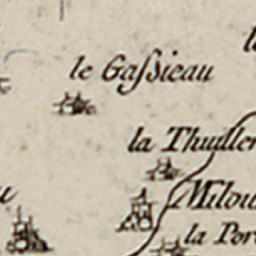 le Gaſsieau
la Thuiller
Milou
la Por